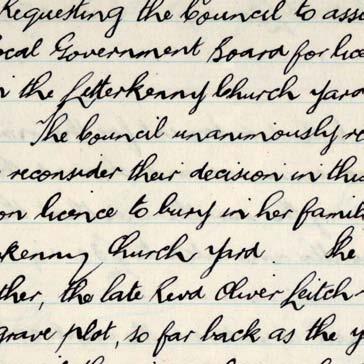 Requesting the Council to asse
ocal Government Board for lice
n the Letterkenny Church Yard
The Council unanimously re
reconsider their decision in this
on licence to bury in her famil
rkenny Church Yard. She
ther, the late Revd Oliver Leitch
grave plot, so far back as the y